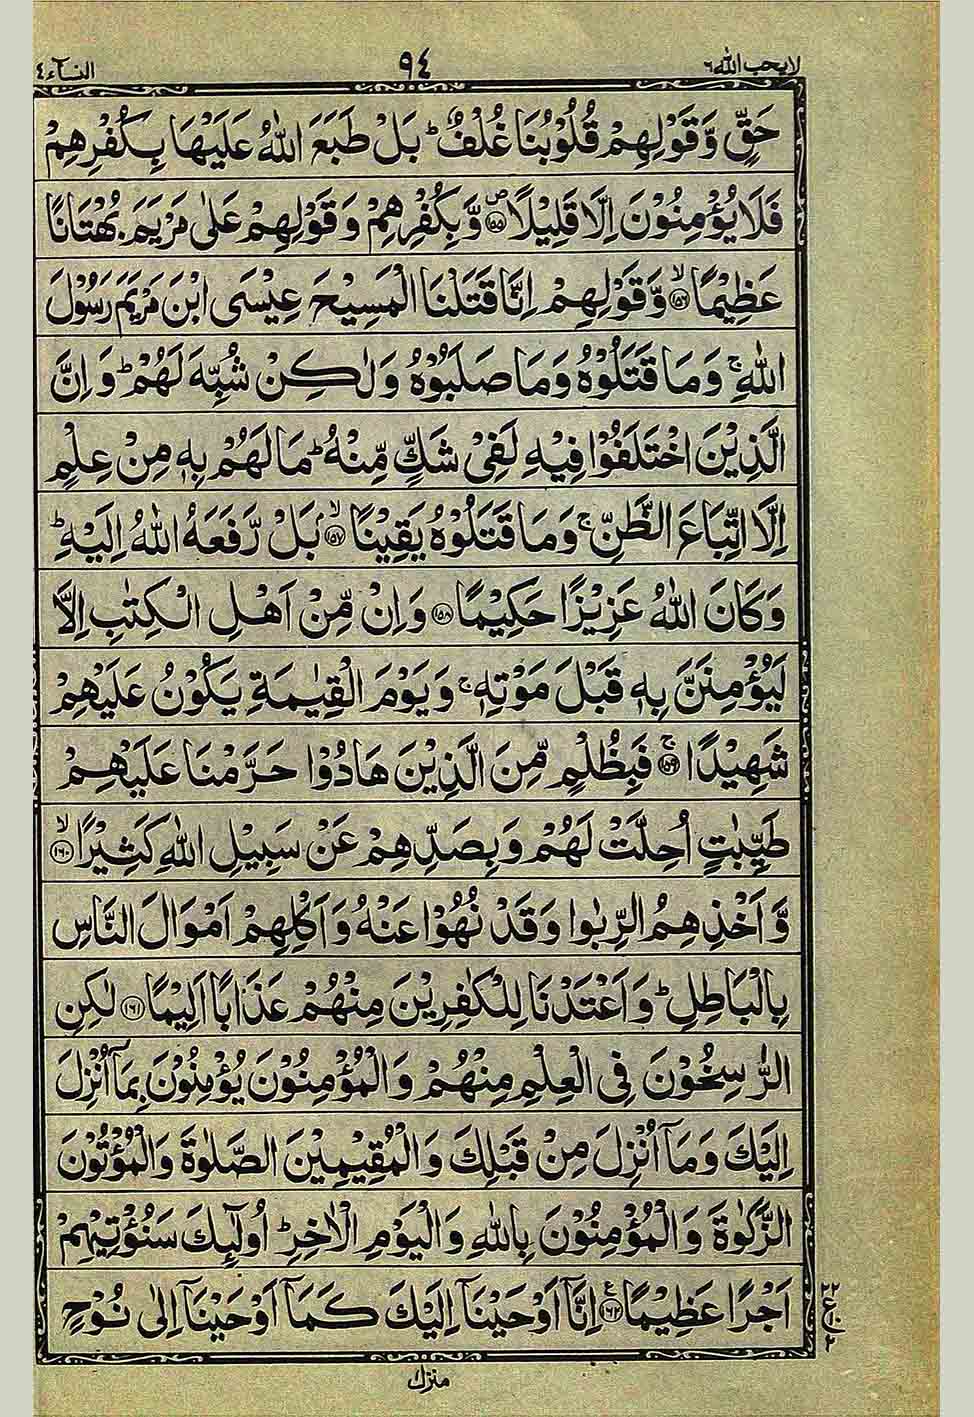 لا يحب الله ٦ ٩٤ النسآء ٤
حَقٍّ وَّقَوْلِهِمْ قُلُوْبُنَا غُلْفٌ ؕ بَلْ طَبَعَ اللّٰهُ عَلَيْهَا بِكُفْرِهِمْ
فَلَا يُؤْمِنُوْنَ اِلَّا قَلِيْلًا ۪﴿۱۵۵﴾ وَّبِكُفْرِهِمْ وَقَوْلِهِمْ عَلٰى مَرْيَمَ بُهْتَانًا
عَظِيْمًا ۙ﴿۱۵۶﴾ وَّقَوْلِهِمْ اِنَّا قَتَلْنَا الْمَسِيْحَ عِيْسَى ابْنَ مَرْيَمَ رَسُوْلَ
اللّٰهِ ۚ وَمَا قَتَلُوْهُ وَمَا صَلَبُوْهُ وَلٰكِنْ شُبِّهَ لَهُمْ ؕ وَاِنَّ
الَّذِيْنَ اخْتَلَفُوْا فِيْهِ لَفِيْ شَكٍّ مِّنْهُ ؕ مَا لَهُمْ بِهٖ مِنْ عِلْمٍ
اِلَّا اتِّبَاعَ الظَّنِّ ۚ وَمَا قَتَلُوْهُ يَقِيْنًا ۙ﴿۱۵۷﴾ بَلْ رَّفَعَهُ اللّٰهُ اِلَيْهِ ؕ
وَكَانَ اللّٰهُ عَزِيْزًا حَكِيْمًا ﴿۱۵۸﴾ وَاِنْ مِّنْ اَهْلِ الْكِتٰبِ اِلَّا
لَيُؤْمِنَنَّ بِهٖ قَبْلَ مَوْتِهٖ ۚ وَيَوْمَ الْقِيٰمَةِ يَكُوْنُ عَلَيْهِمْ
شَهِيْدًا ۚ﴿۱۵۹﴾ فَبِظُلْمٍ مِّنَ الَّذِيْنَ هَادُوْا حَرَّمْنَا عَلَيْهِمْ
طَيِّبٰتٍ اُحِلَّتْ لَهُمْ وَبِصَدِّهِمْ عَنْ سَبِيْلِ اللّٰهِ كَثِيْرًا ۙ﴿۱۶۰﴾
وَّاَخْذِهِمُ الرِّبٰوا وَقَدْ نُهُوْا عَنْهُ وَاَكْلِهِمْ اَمْوَالَ النَّاسِ
بِالْبَاطِلِ ؕ وَاَعْتَدْنَا لِلْكٰفِرِيْنَ مِنْهُمْ عَذَابًا اَلِيْمًا ﴿۱۶۱﴾ لٰكِنِ
الرّٰسِخُوْنَ فِي الْعِلْمِ مِنْهُمْ وَالْمُؤْمِنُوْنَ يُؤْمِنُوْنَ بِمَآ اُنْزِلَ
اِلَيْكَ وَمَآ اُنْزِلَ مِنْ قَبْلِكَ وَالْمُقِيْمِيْنَ الصَّلٰوةَ وَالْمُؤْتُوْنَ
الزَّكٰوةَ وَالْمُؤْمِنُوْنَ بِاللّٰهِ وَالْيَوْمِ الْاٰخِرِ ؕ اُولٰٓئِكَ سَنُؤْتِيْهِمْ
اَجْرًا عَظِيْمًا ﴿۱۶۲﴾ ع اِنَّآ اَوْحَيْنَآ اِلَيْكَ كَمَآ اَوْحَيْنَآ اِلٰى نُوْحٍ
ع
منزل